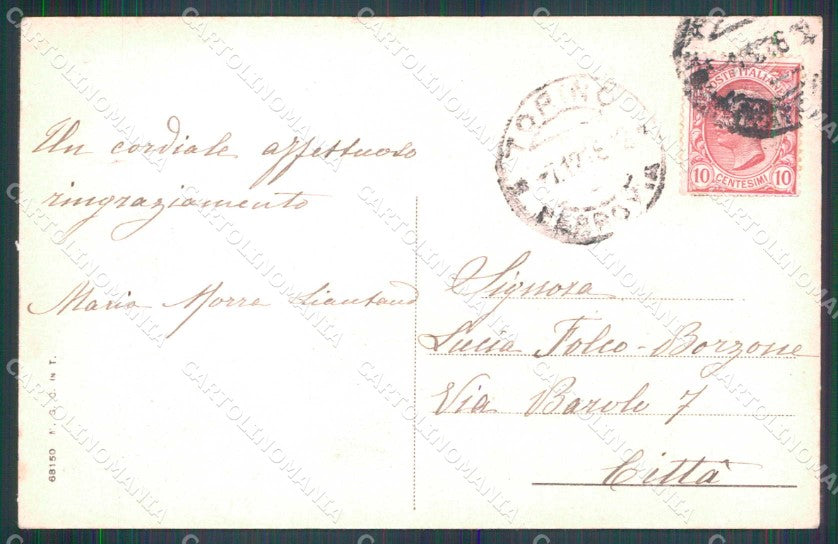 Un cordiale affettuoso
ringraziamento
Maria Morra
68150
TORINO
FERROVIA
POSTE ITALIANE
10 CENTESIMI 10
Signora
Lucia Folco-Borzone
Via Barolo 7
Città
CARTOLINOMANIA